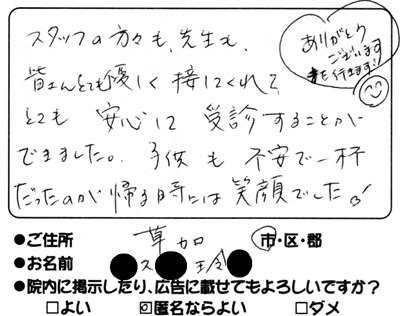 スタッフの方々も、先生も、
皆さんとても優しく接してくれて、
とても安心して受診することが
できました。子供も不安で一杯
だったのが帰る時には笑顔でした!
ありがとう
ございます
また行きます!
●ご住所 草加 市・区・郡
●お名前 ス 玲
●院内に掲示したり、広告に載せてもよろしいですか?
□よい ☑匿名ならよい □ダメ